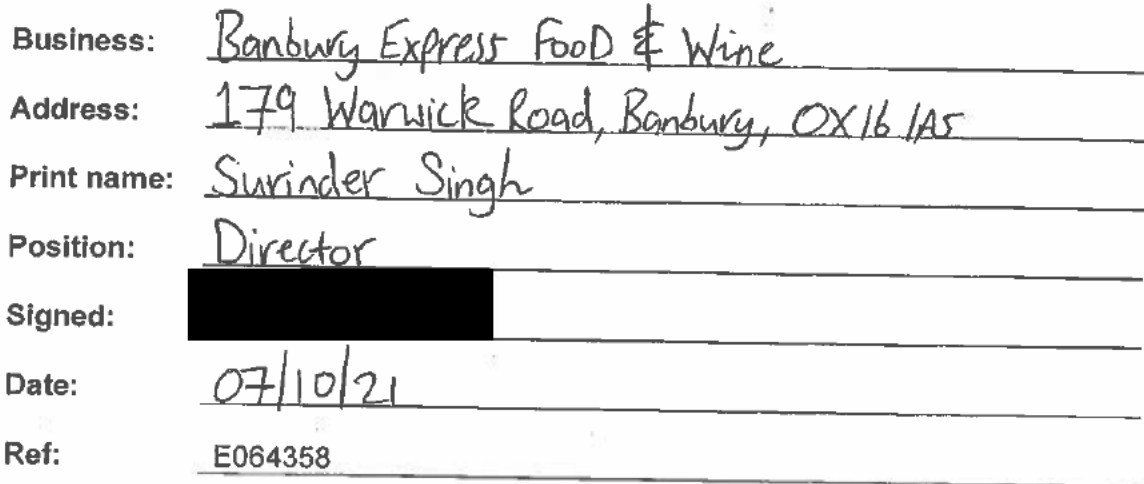 Business: Banbury Express FooD & Wine
Address: 179 Warwick Road, Banbury, OX16 1AS
Print name: Surinder Singh
Position: Director
Signed:
Date: 07/10/21
Ref: E064358